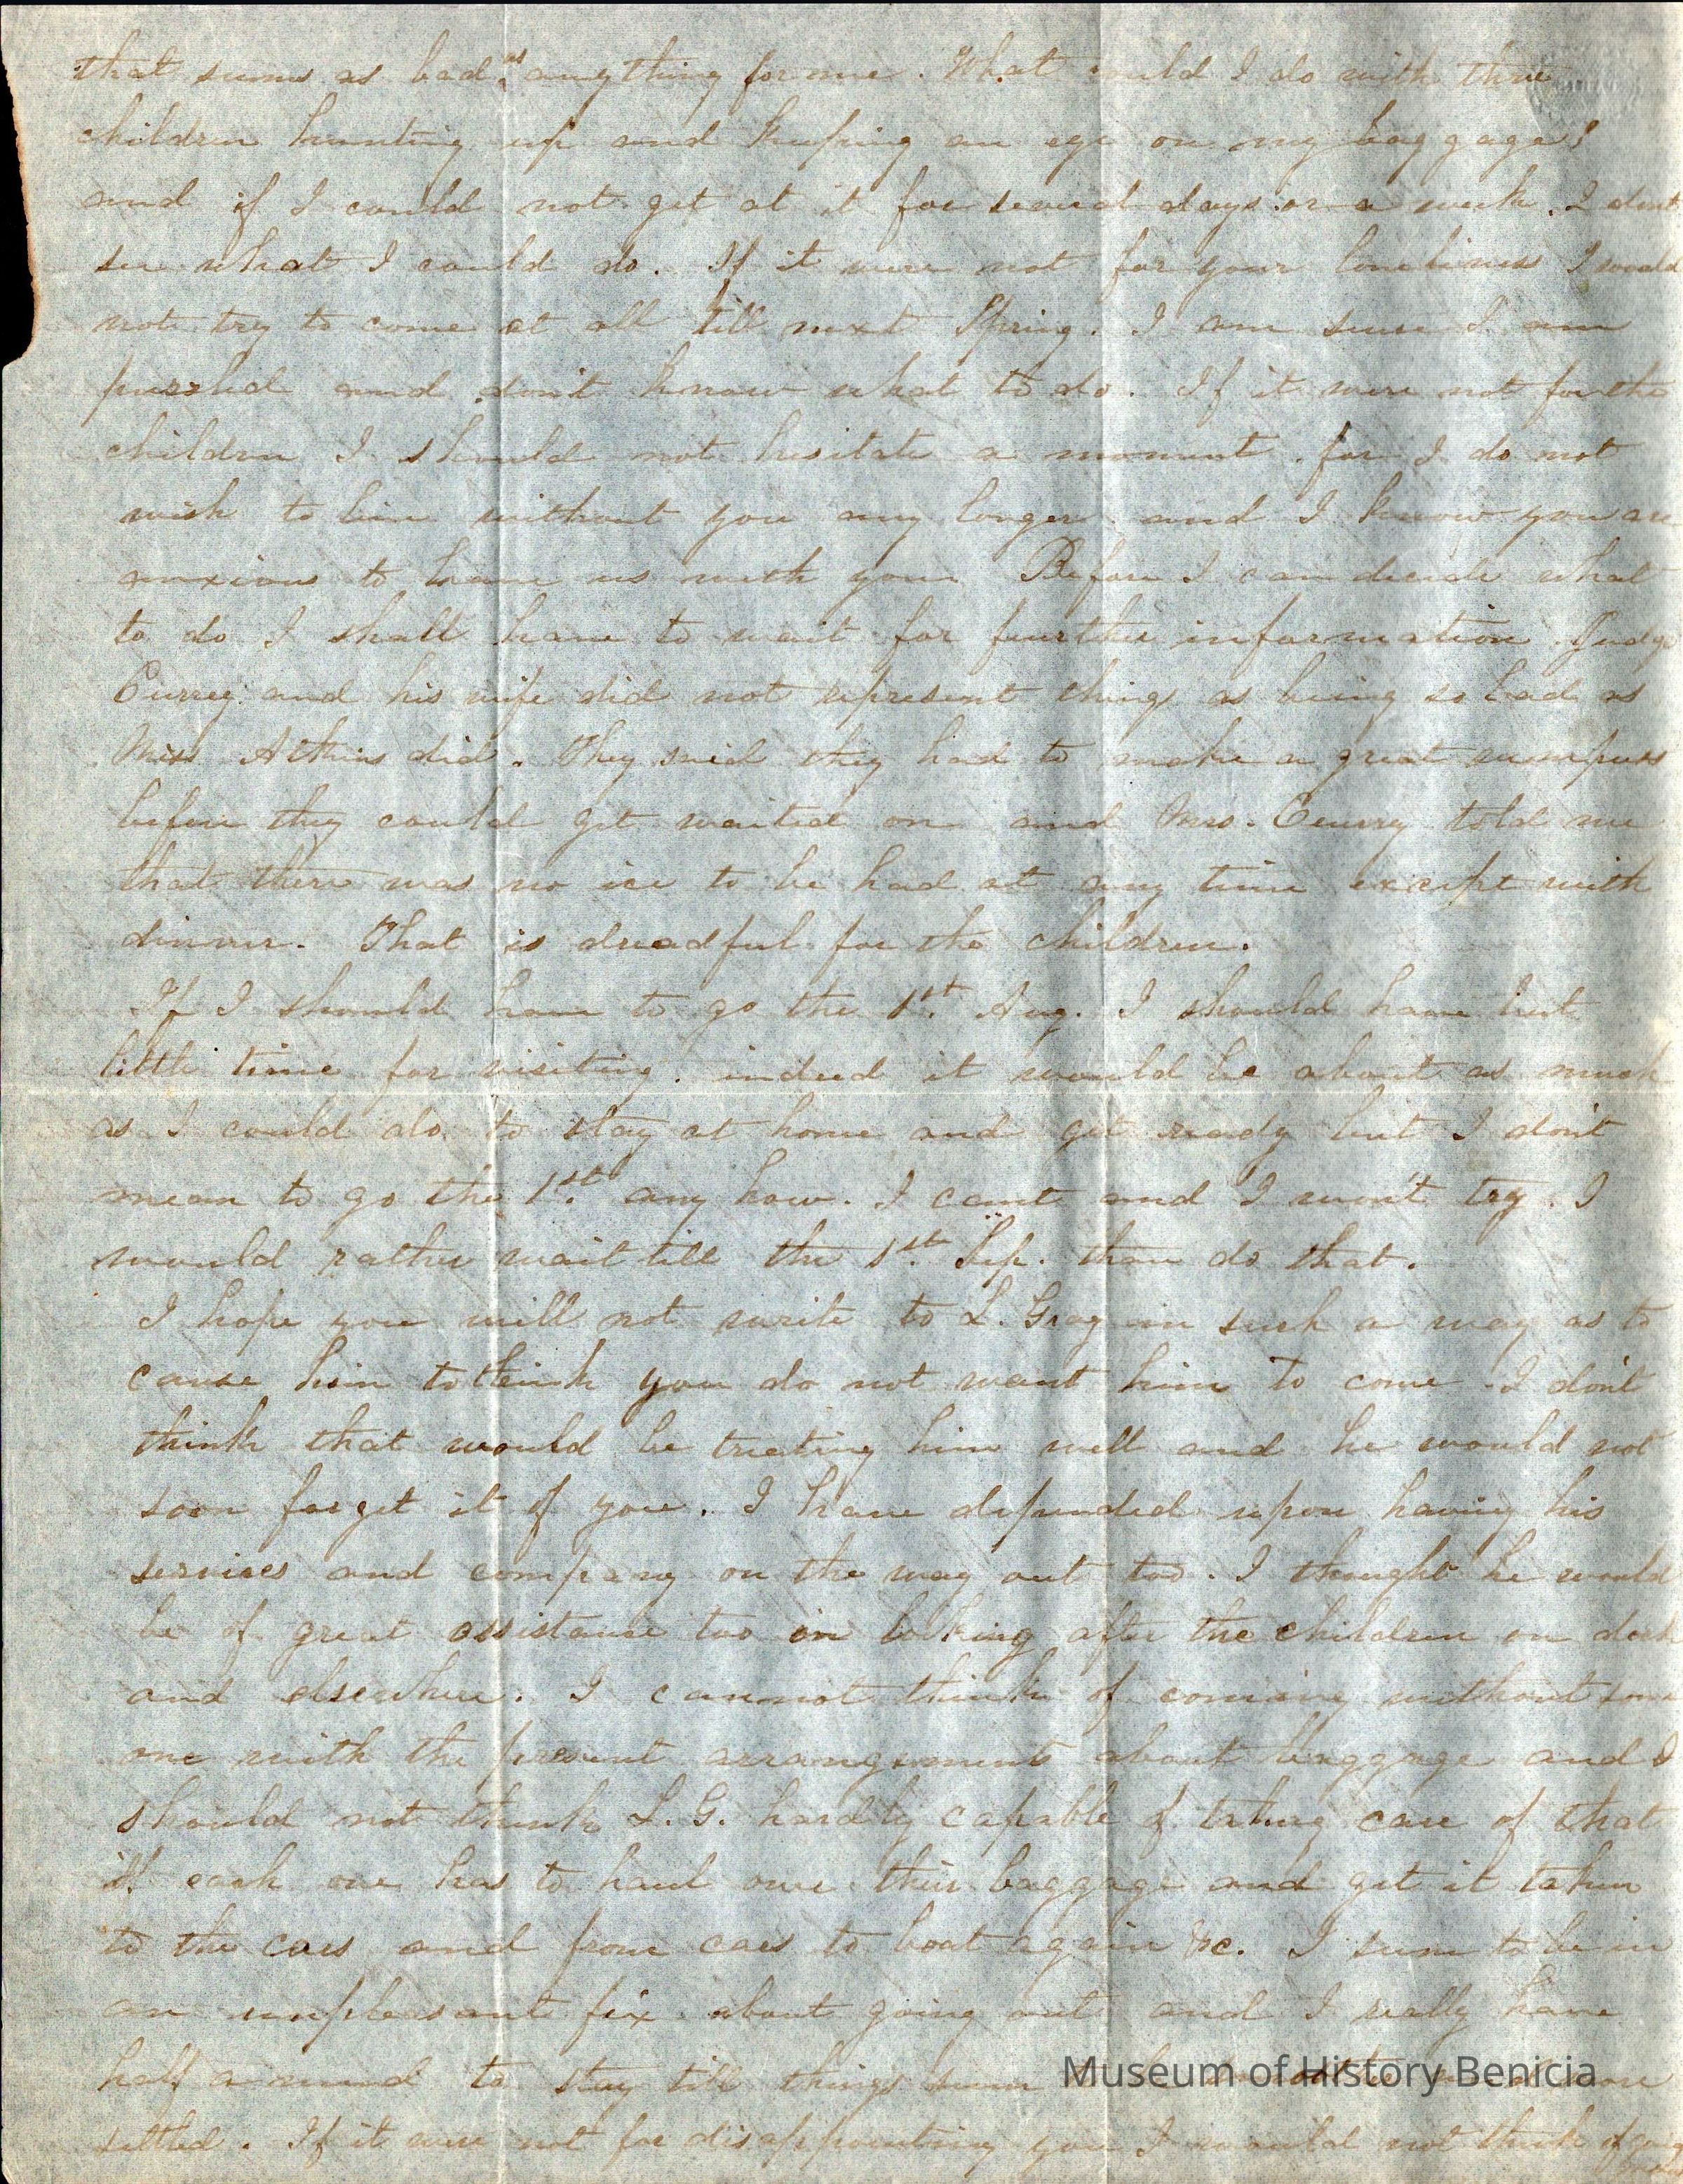 that seems as bad as anything for me. What could I do with three
children hunting up and keeping an eye on my baggage?
and if I could not get at it for several days or a week. I dont
see what I could do. If it were not for your loneliness I would
not try to come at all till next Spring. I am sure I am
puzzled and don't know what to do. If it were not for the
children I should not hesitate a moment. for I do not
wish to live without you any longer and I know you are
anxious to have us with you. Before I can decide what
to do I shall have to wait for further information. Judge
Currey and his wife did not represent things as being so bad as
Miss Atkins did. They said they had to make a great rumpuss
before they could get waited on and Mrs. Currey told me
that there was no ice to be had at any time except with
dinner. That is dreadful for the children.
If I should have to go the 1st. Aug. I should have but
little time for visiting. indeed it would be about as much
as I could do to stay at home and get ready but I don't
mean to go the 1st. any how. I cant and I won't try. I
would rather wait till the 1st. Sep. than do that.
I hope you will not write to L. Gray in such a way as to
cause him to think you do not want him to come. I don't
think that would be treating him well and he would not
soon forget it of you. I have depended upon having his
services and company on the way out too. I thought he would
be of great assistance too in looking after the children on deck
and elsewhere. I cannot think of coming without some
one with the present arrangements about baggage and I
should not think L. G. hardly capable of taking care of that
if each one has to haul over their baggage and get it taken
to the cars and from cars to boat again &c. I seem to be in
an unpleasant fix about going out and I really have
half a mind to stay till things seem to be more
settled. If it were not for disappointing you I would not think of going
Museum of History Benicia